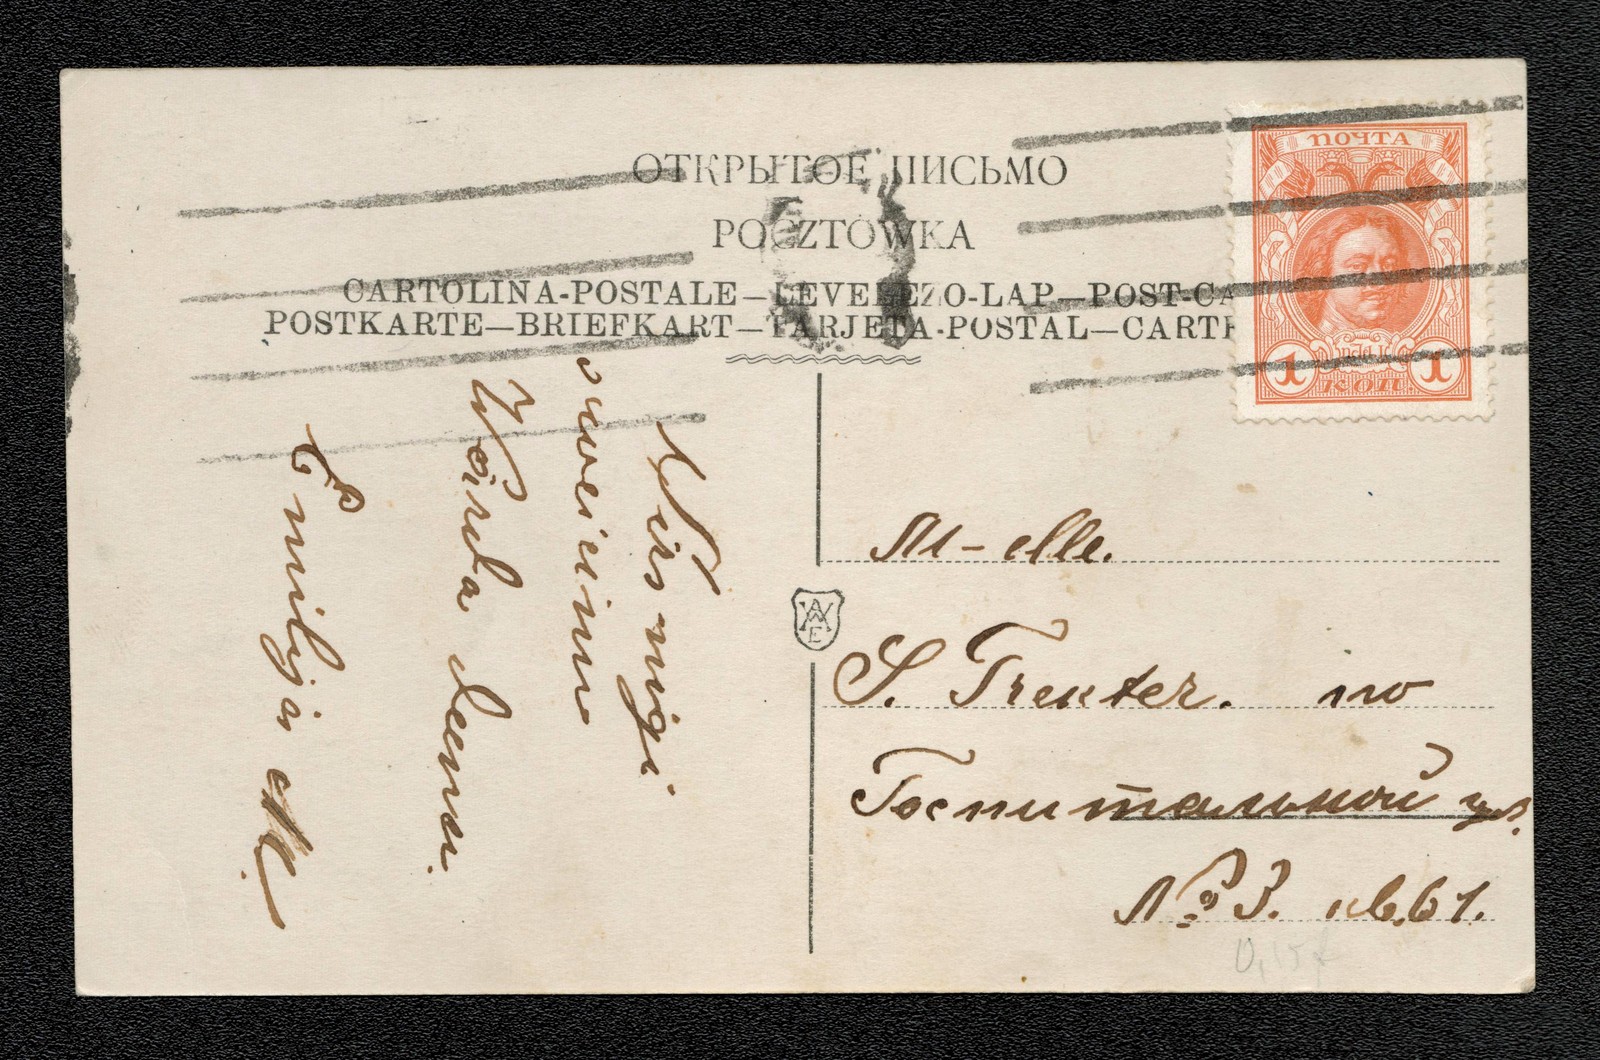 ОТКРЫТОЕ ПИСЬМО
POCZTÓWKA
CARTOLINA-POSTALE—LEVELEZO-LAP—POST-CA
POSTKARTE—BRIEFKART—TARJETA-POSTAL—CARTE
ПОЧТА
1 КОП. 1
Kirsmigi
Wõrdu
Emilja M.
AWE
M-elle.
S. Trekter. по
Госпитальной ул.
№ 3. кв. 61.